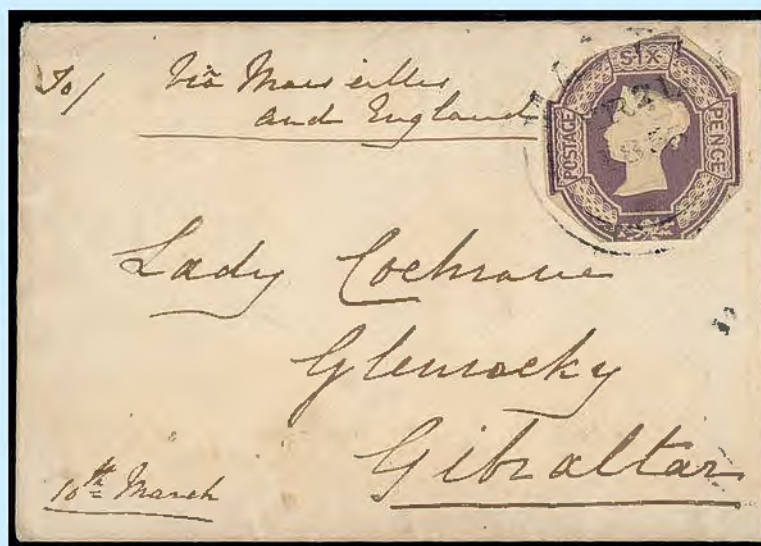 To/ Viâ Marseilles
and England
SIX
POSTAGE
PENCE
Lady Cochrane
Glenrocky
Gibraltar
10th March